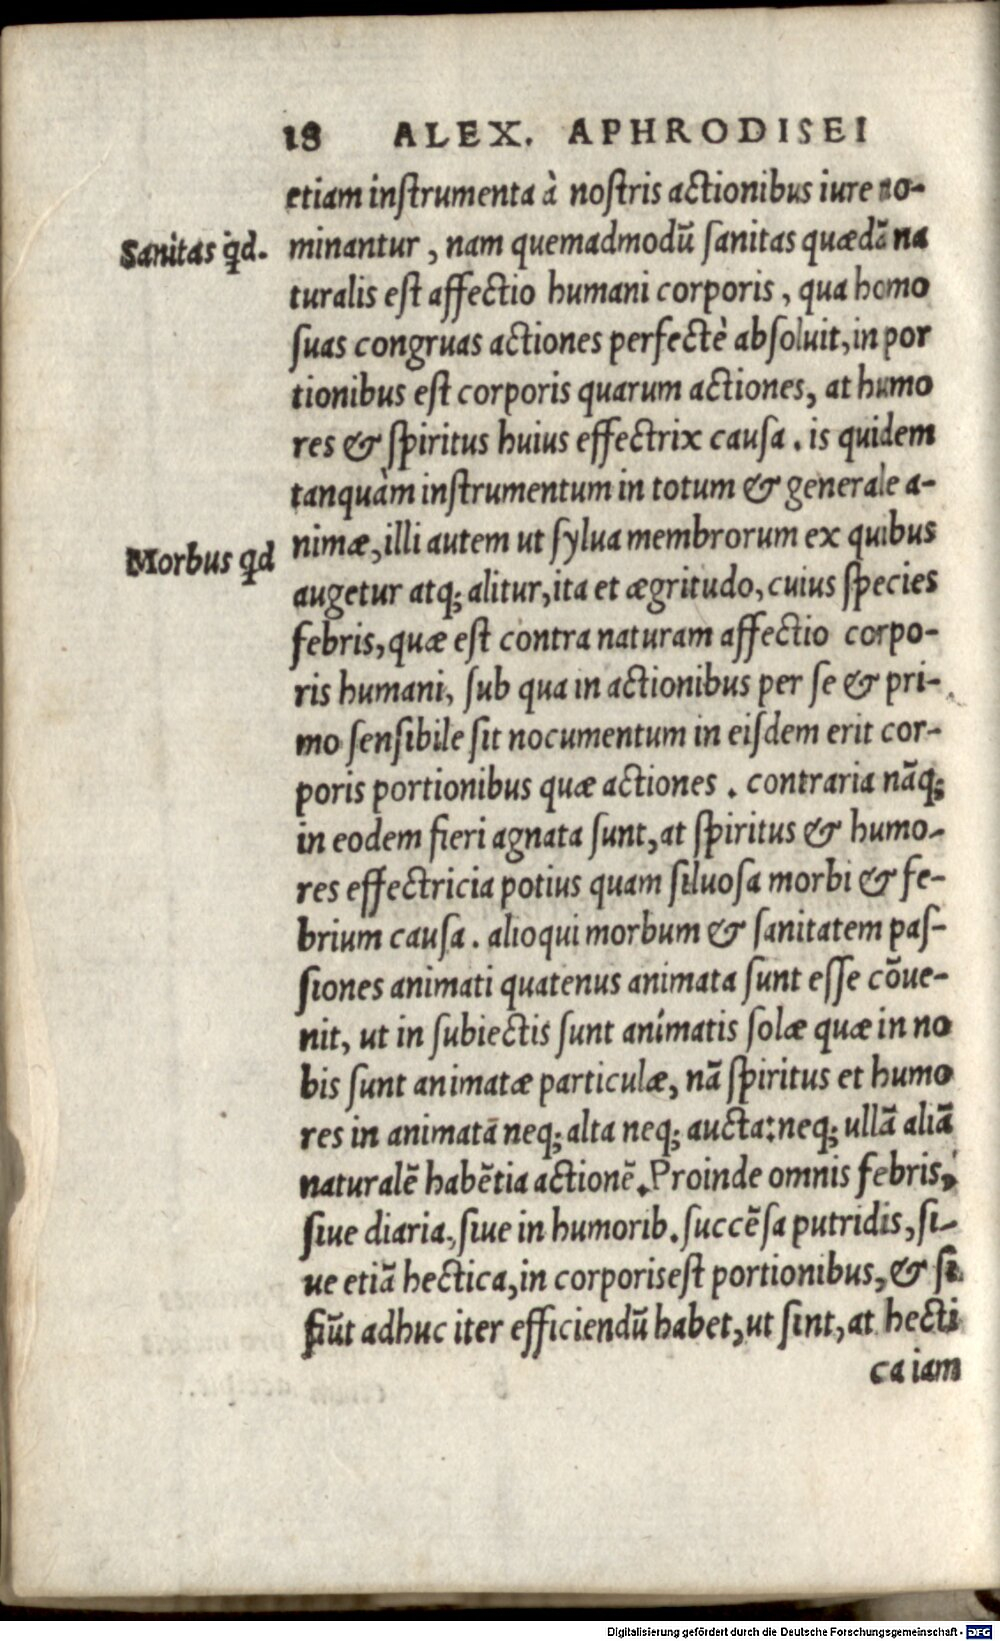 18 ALEX. APHRODISEI
etiam inſtrumenta à noſtris actionibus iure no-
Sanitas q̇d.
minantur, nam quemadmodū ſanitas quædā na
turalis eſt affectio humani corporis, qua homo
ſuas congruas actiones perfectè abſoluit, in por
tionibus eſt corporis quarum actiones, at humo
res & ſpiritus huius effectrix cauſa. is quidem
tanquàm inſtrumentum in totum & generale a-
nimæ, illi autem ut ſylua membrorum ex quibus
Morbus q̇d
augetur atq; alitur, ita et ægritudo, cuius ſpecies
febris, quæ eſt contra naturam affectio corpo-
ris humani, ſub qua in actionibus per ſe & pri-
mo ſenſibile ſit nocumentum in eiſdem erit cor-
poris portionibus quæ actiones. contraria nāq;
in eodem fieri agnata ſunt, at ſpiritus & humo-
res effectricia potius quam ſiluoſa morbi & fe-
brium cauſa. alioqui morbum & ſanitatem paſ-
ſiones animati quatenus animata ſunt eſſe cōue-
nit, ut in ſubiectis ſunt animatis ſolæ quæ in no
bis ſunt animatæ particulæ, nā ſpiritus et humo
res in animatā neq; alta neq; aucta: neq; ullā aliā
naturalē habētia actionē. Proinde omnis febris,
ſiue diaria, ſiue in humorib. ſuccēſa putridis, ſi-
ue etiā hectica, in corporis eſt portionibus, & ſi
fiūt adhuc iter efficiendū habet, ut ſint, at hecti
ca iam
Digitalisierung gefördert durch die Deutsche Forschungsgemeinschaft - DFG